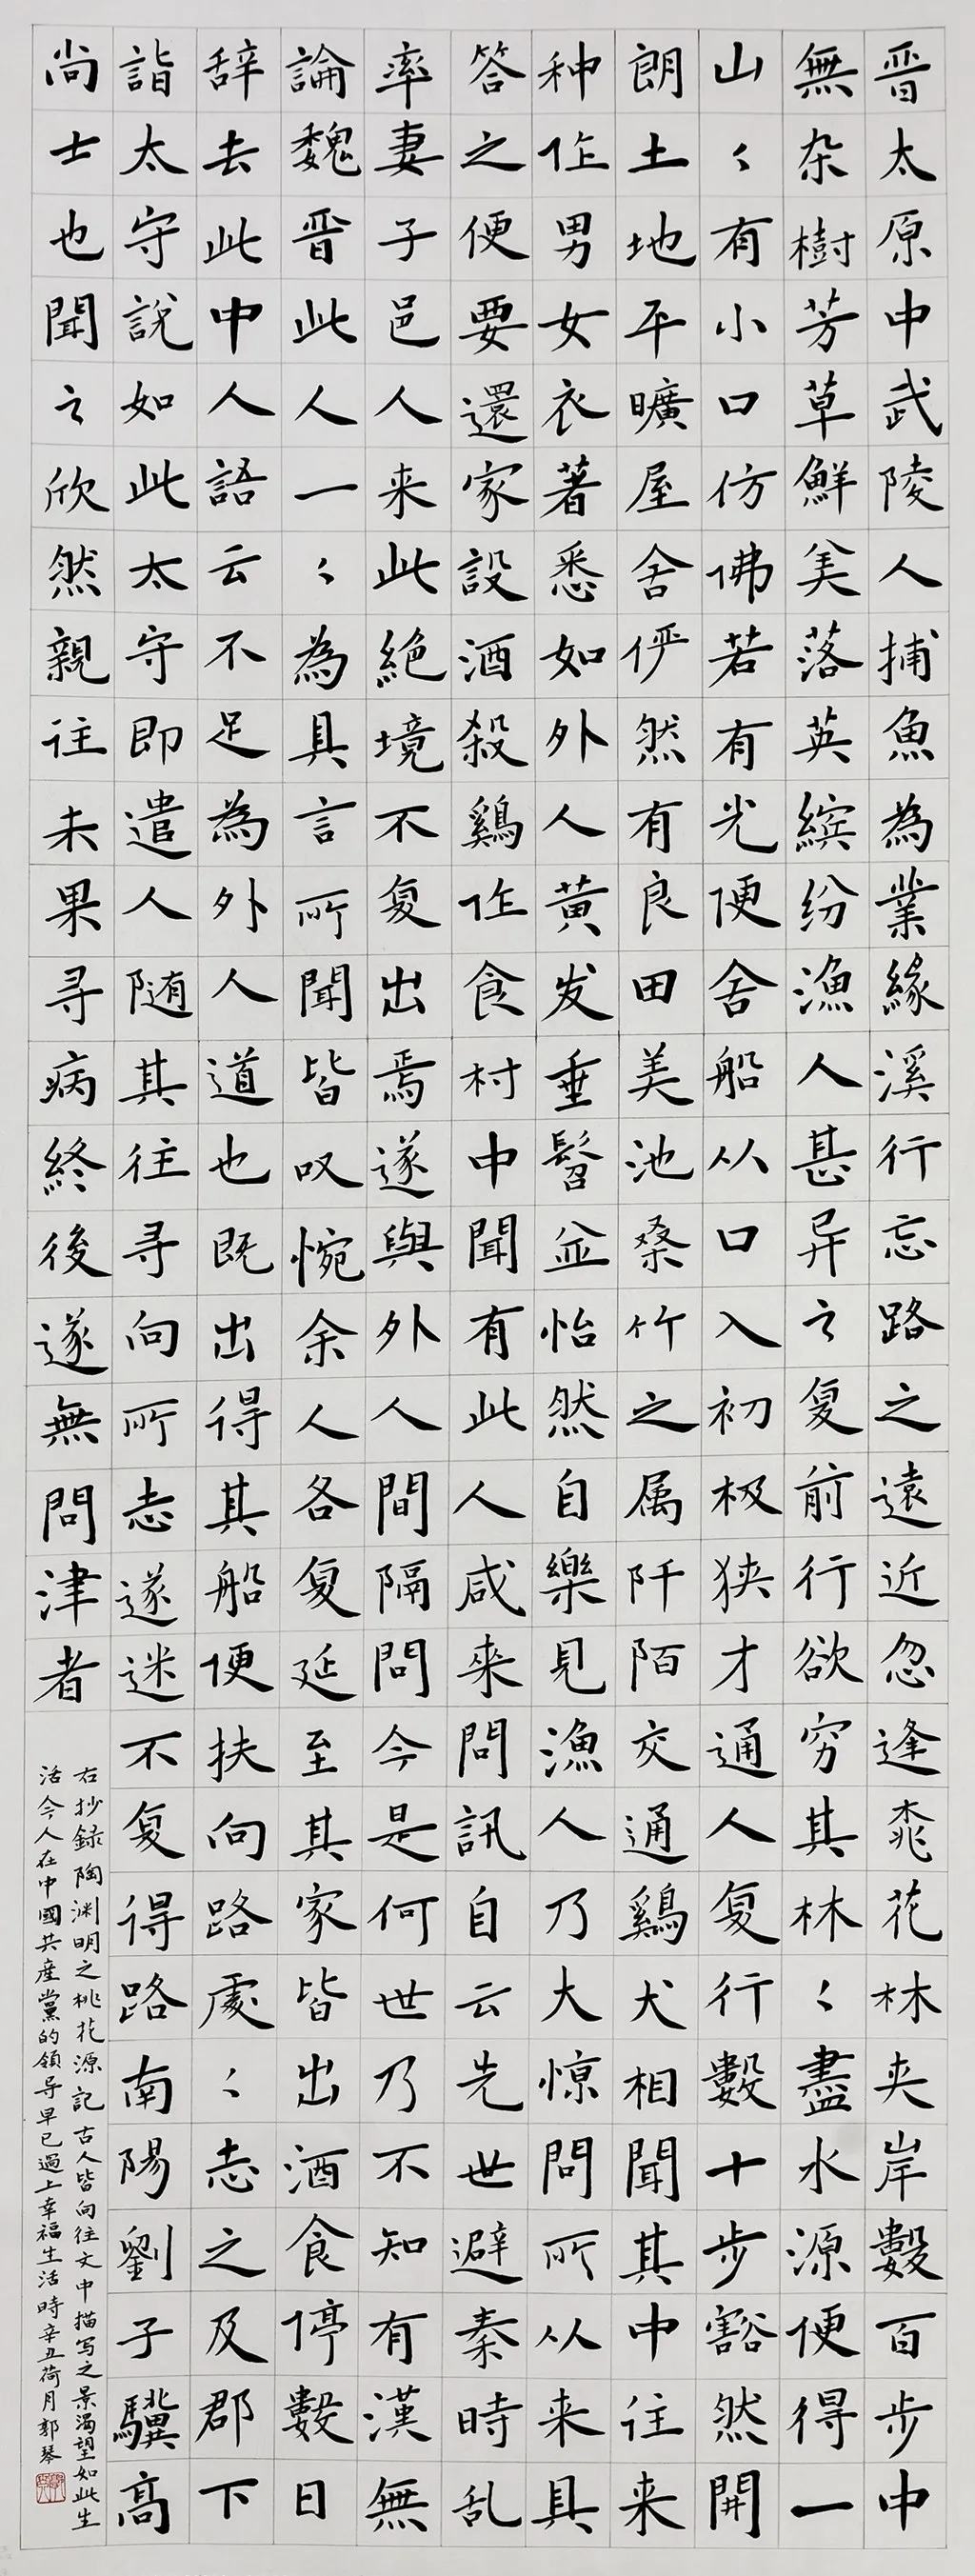 晋太原中武陵人捕魚為業緣溪行忘路之遠近忽逢桃花林夹岸數百步中
無杂樹芳草鮮美落英繽纷漁人甚异之复前行欲穷其林〻盡水源便得一
山〻有小口仿佛若有光便舍船从口入初极狭才通人复行數十步豁然開
朗土地平曠屋舍俨然有良田美池桑竹之属阡陌交通鷄犬相聞其中往来
种作男女衣著悉如外人黄发垂髫並怡然自樂見漁人乃大惊問所从来具
答之便要還家設酒殺鷄作食村中聞有此人咸來問訊自云先世避秦時乱
率妻子邑人来此絶境不复出焉遂與外人間隔問今是何世乃不知有漢無
論魏晋此人一〻為具言所聞皆叹惋余人各复延至其家皆出酒食停數日
辞去此中人語云不足為外人道也既出得其船便扶向路處〻志之及郡下
詣太守說如此太守即遣人随其往寻向所志遂迷不复得路南陽劉子驥高
尚士也聞之欣然親往未果寻病終後遂無問津者
右抄録陶渊明之桃花源記古人皆向往文中描写之景渴望如此生
活今人在中國共産黨的領导早已過上幸福生活時辛丑荷月郭琴